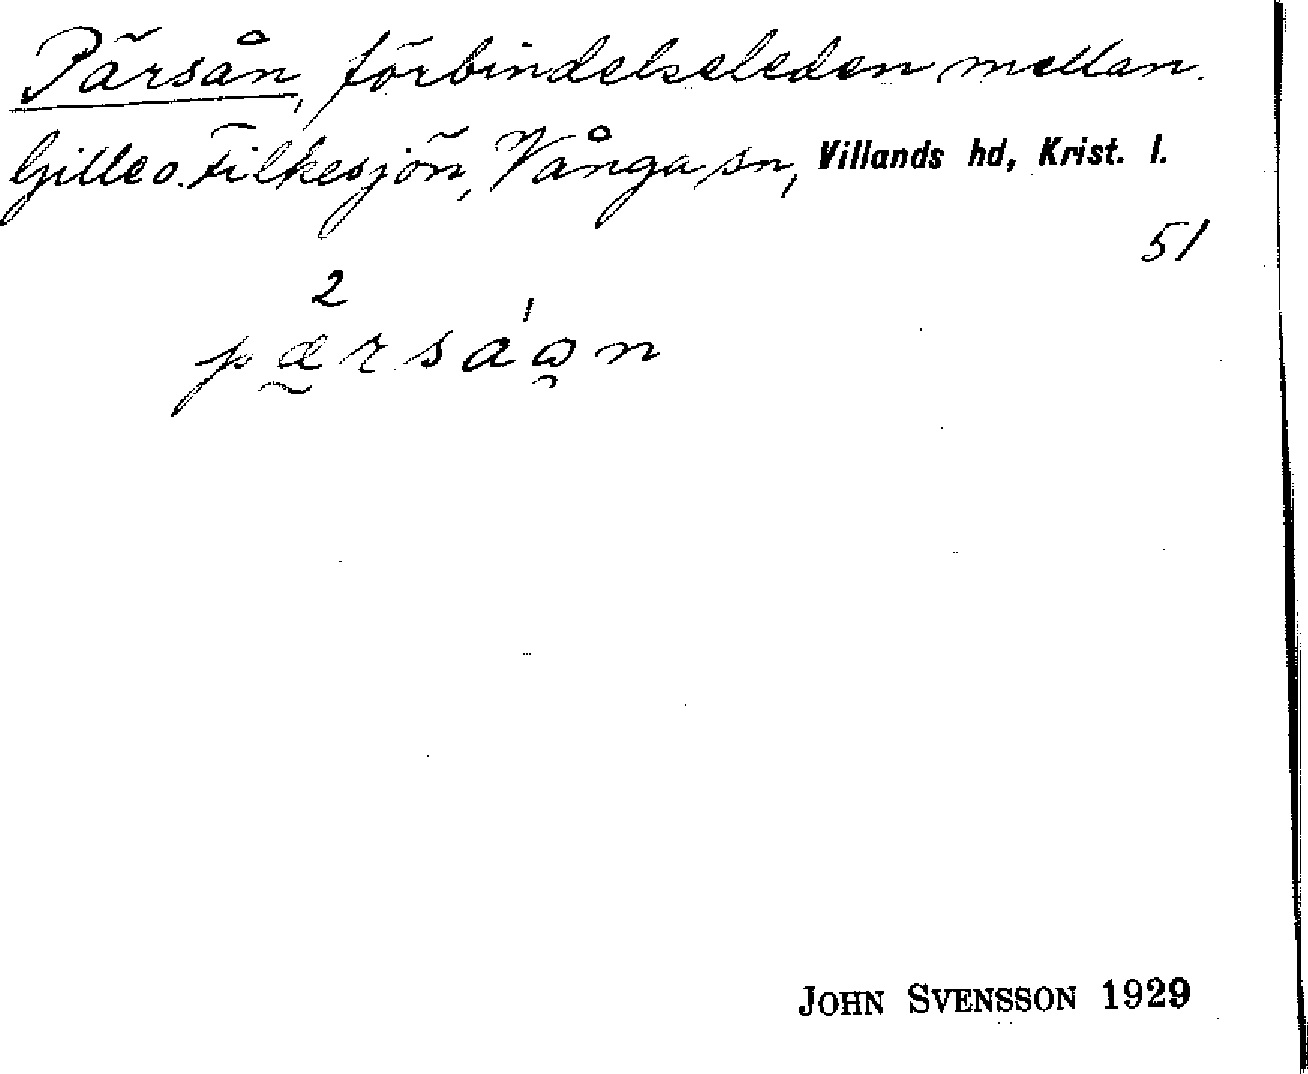 Pärsån, förbindelseleden mellan
Gille o. Filkesjön, Vånga sn, Villands hd, Krist. l.
51
2
pærsáån
JOHN SVENSSON 1929